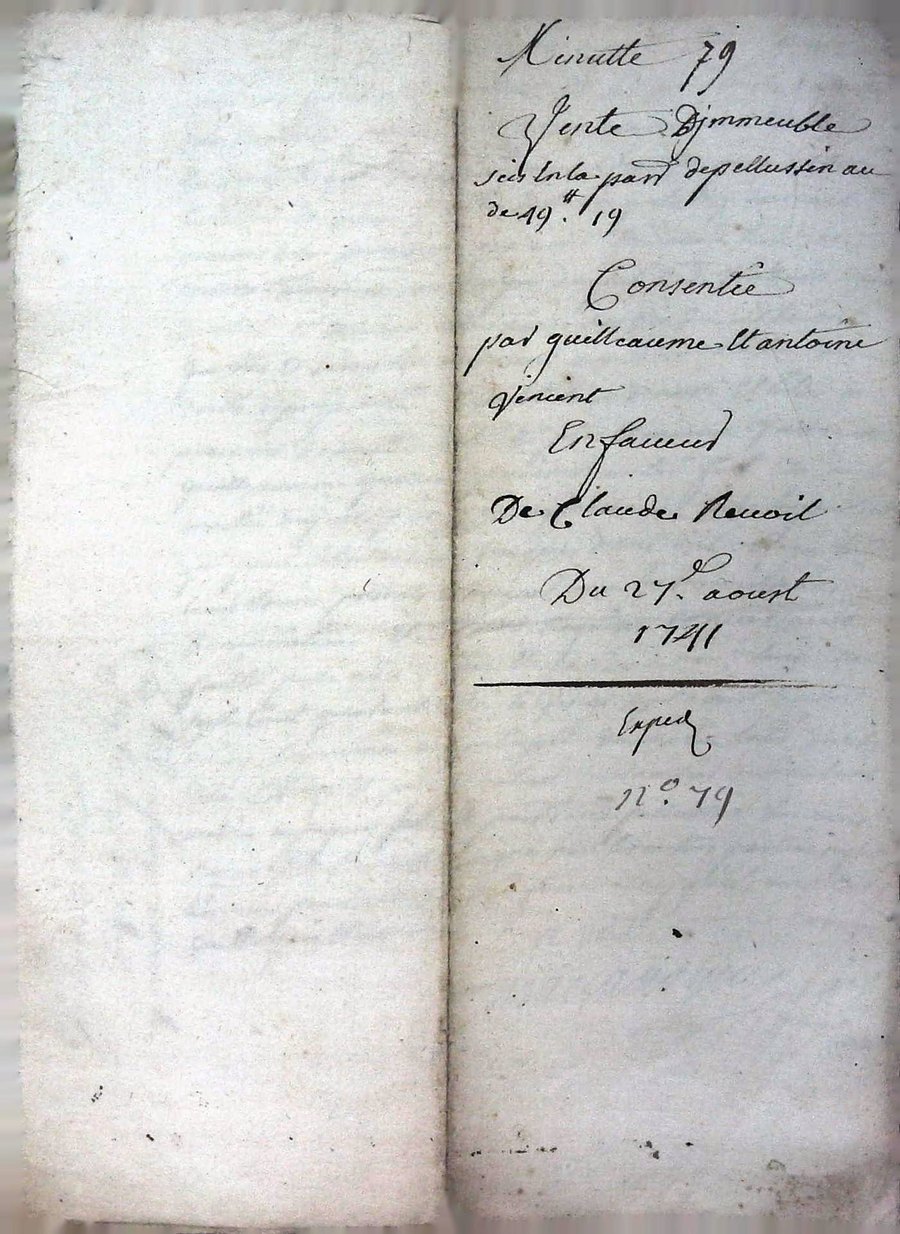 Minutte 79
Vente Djmmeuble
scis En la parr depellussin au
de 49.# 19
Consentie
par guilleaume Et antoine
Vincent
En faueur
De Claude Reuoil
Du 27.e aoust
1741
Exped
n.o 79